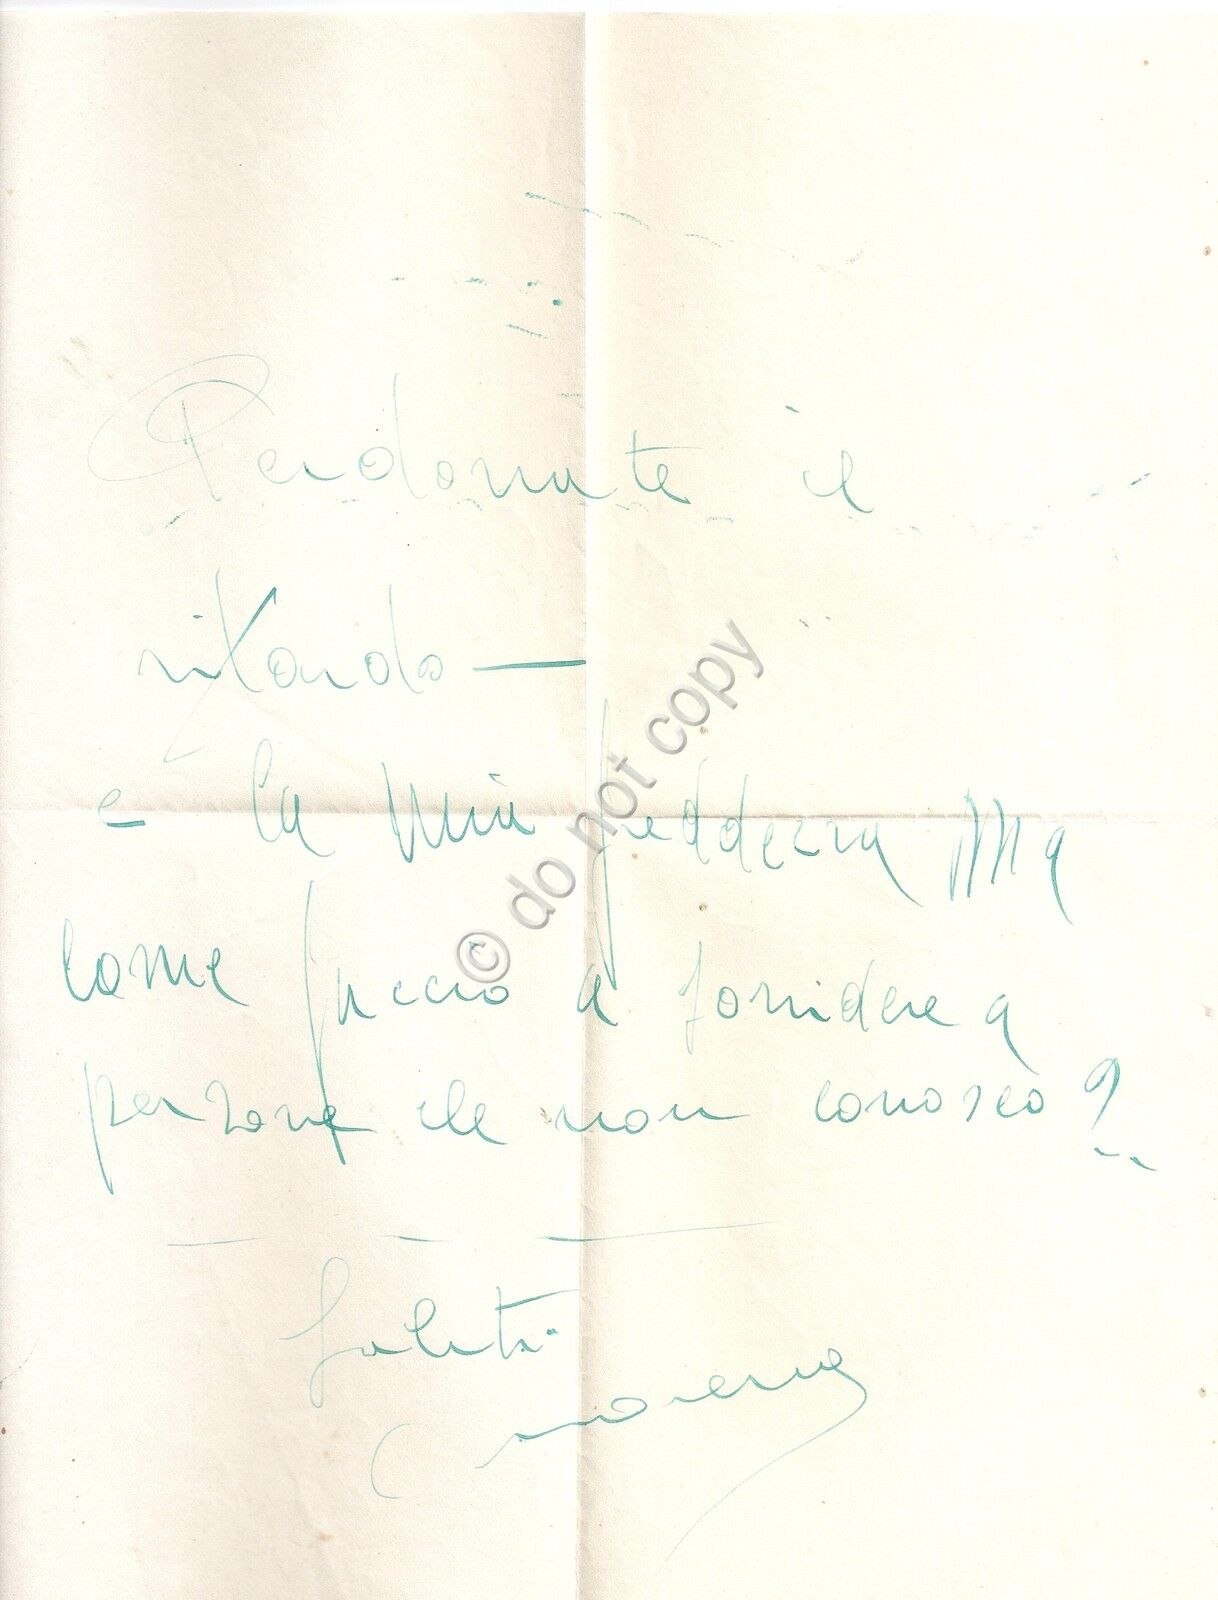 Perdonate il
ritardo —
e la mia freddezza Ma
come faccio a sorridere a
persone che non conosco?
Saluti
© do not copy